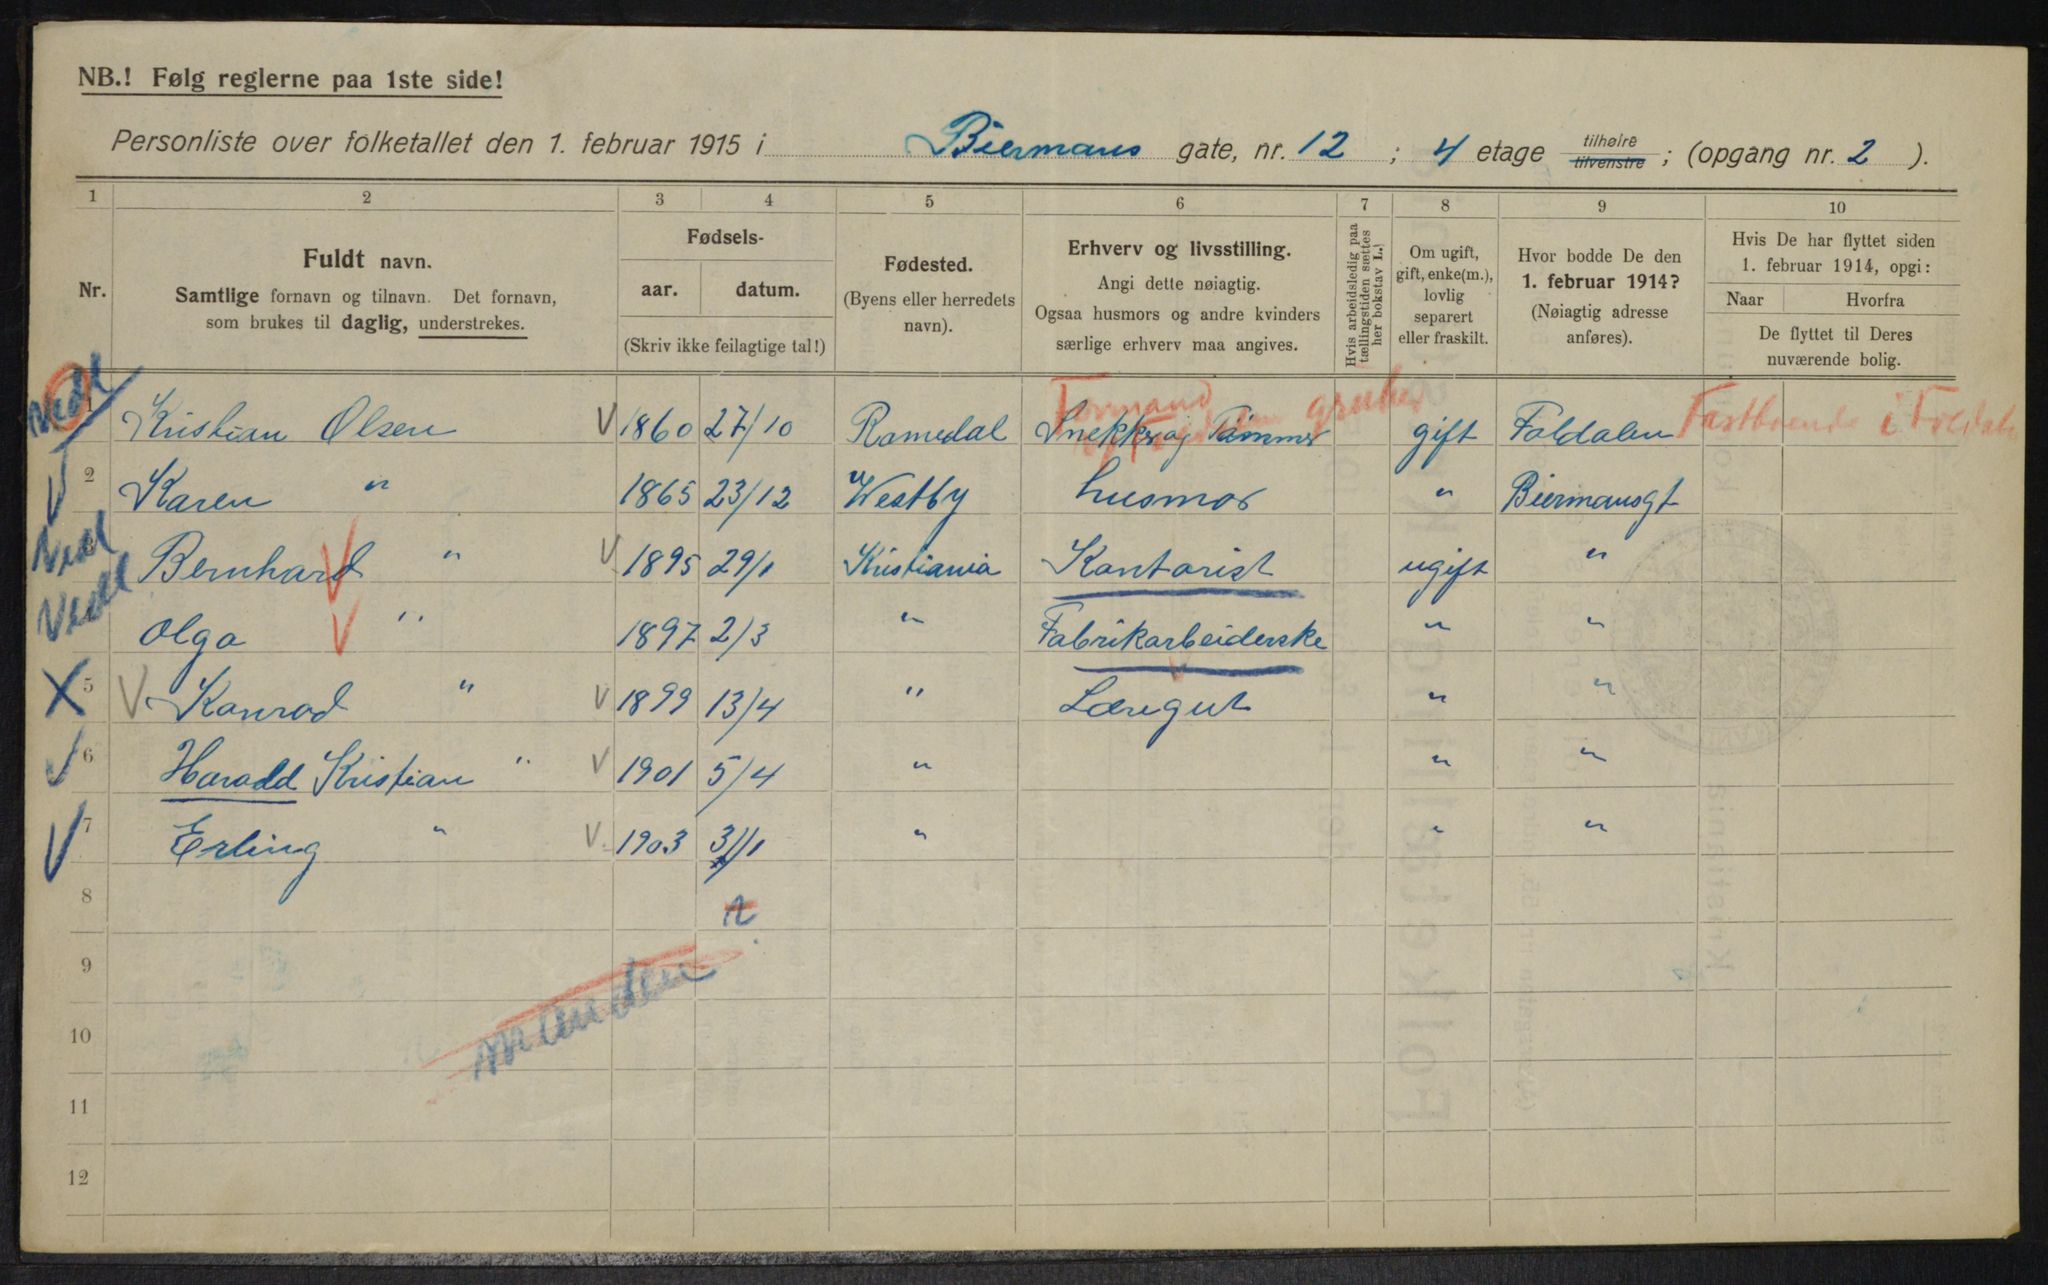 NB.! Følg reglerne paa 1ste side!
Personliste over folketallet den 1. februar 1915 i Biermans gate, nr. 12 ; 4 etage tilhøire tilvenstre ; (opgang nr. 2 ).
1 2 3 4 5 6 7 8 9 10
Nr.
Fuldt navn.
Samtlige fornavn og tilnavn. Det fornavn,
som brukes til daglig, understrekes.
Fødsels-
aar. datum.
(Skriv ikke feilagtige tal!)
Fødested.
(Byens eller herredets
navn).
Erhverv og livsstilling.
Angi dette nøiagtig.
Ogsaa husmors og andre kvinders
særlige erhverv maa angives.
Hvis arbeidsledig paa
tællingstiden sættes
her bokstav L.
Om ugift,
gift, enke(m.),
lovlig
separert
eller fraskilt.
Hvor bodde De den
1. februar 1914?
(Nøiagtig adresse
anføres).
Hvis De har flyttet siden
1. februar 1914, opgi:
Naar Hvorfra
De flyttet til Deres
nuværende bolig.
Formand gruber
1 Kristian Olsen V 1860 27/10 Romedal Snekker og Tømmer gift Foldalen Fastboende i Foldal
2 Karen " 1865 23/12 Westby husmor " Biermansgt
3 Bernhard V " V 1895 29/1 Kristiania Kontorist ugift "
Olga V " 1897 2/3 " Fabrikarbeiderske " "
X 5 V Konrad " V 1899 13/4 " Læregut " "
6 Harald Kristian " V 1901 5/4 " " "
7 Erling " V 1903 3/1 " " "
8
9
manden
10
11
12